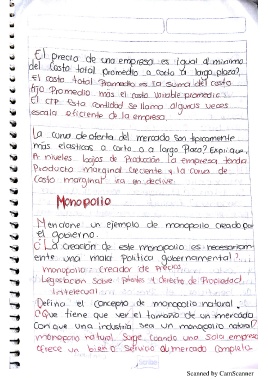 El precio de una empresa es igual al minimo
del costo total promedio a corto y a largo plazo?,
El costo total Promedio es la suma del costo
fijo Promedio más el costo Variable promedio.
El CTP Esta cantidad se llama algunas veces
escala eficiente de la empresa.
La curva de oferta del mercado son tipicamente
más elasticas a corto o a largo Plazo? Explique,
A niveles bajos de Producción la empresa tendra
Producto marginal Creciente y la curva de
Costo marginal ira en declive.
Monopolio
Mencione un ejemplo de monopolio creado por
el gobierno.
¿La creación de este monopolio es necesariamente
una mala Politica gubernamental?
monopolio: Creador de Precios
Legislacion Sobre Patentes y Derecho de Propiedad
Intelectual
Defina el concepto de monopolio natural,
¿Que tiene que ver el tamaño de un mercado
Con que una industria sea un monopolio natural?
monopolio natural Surge Cuando una Sola empresa
ofrece un bien o Servicio al mercado Completo
Scanned by CamScanner